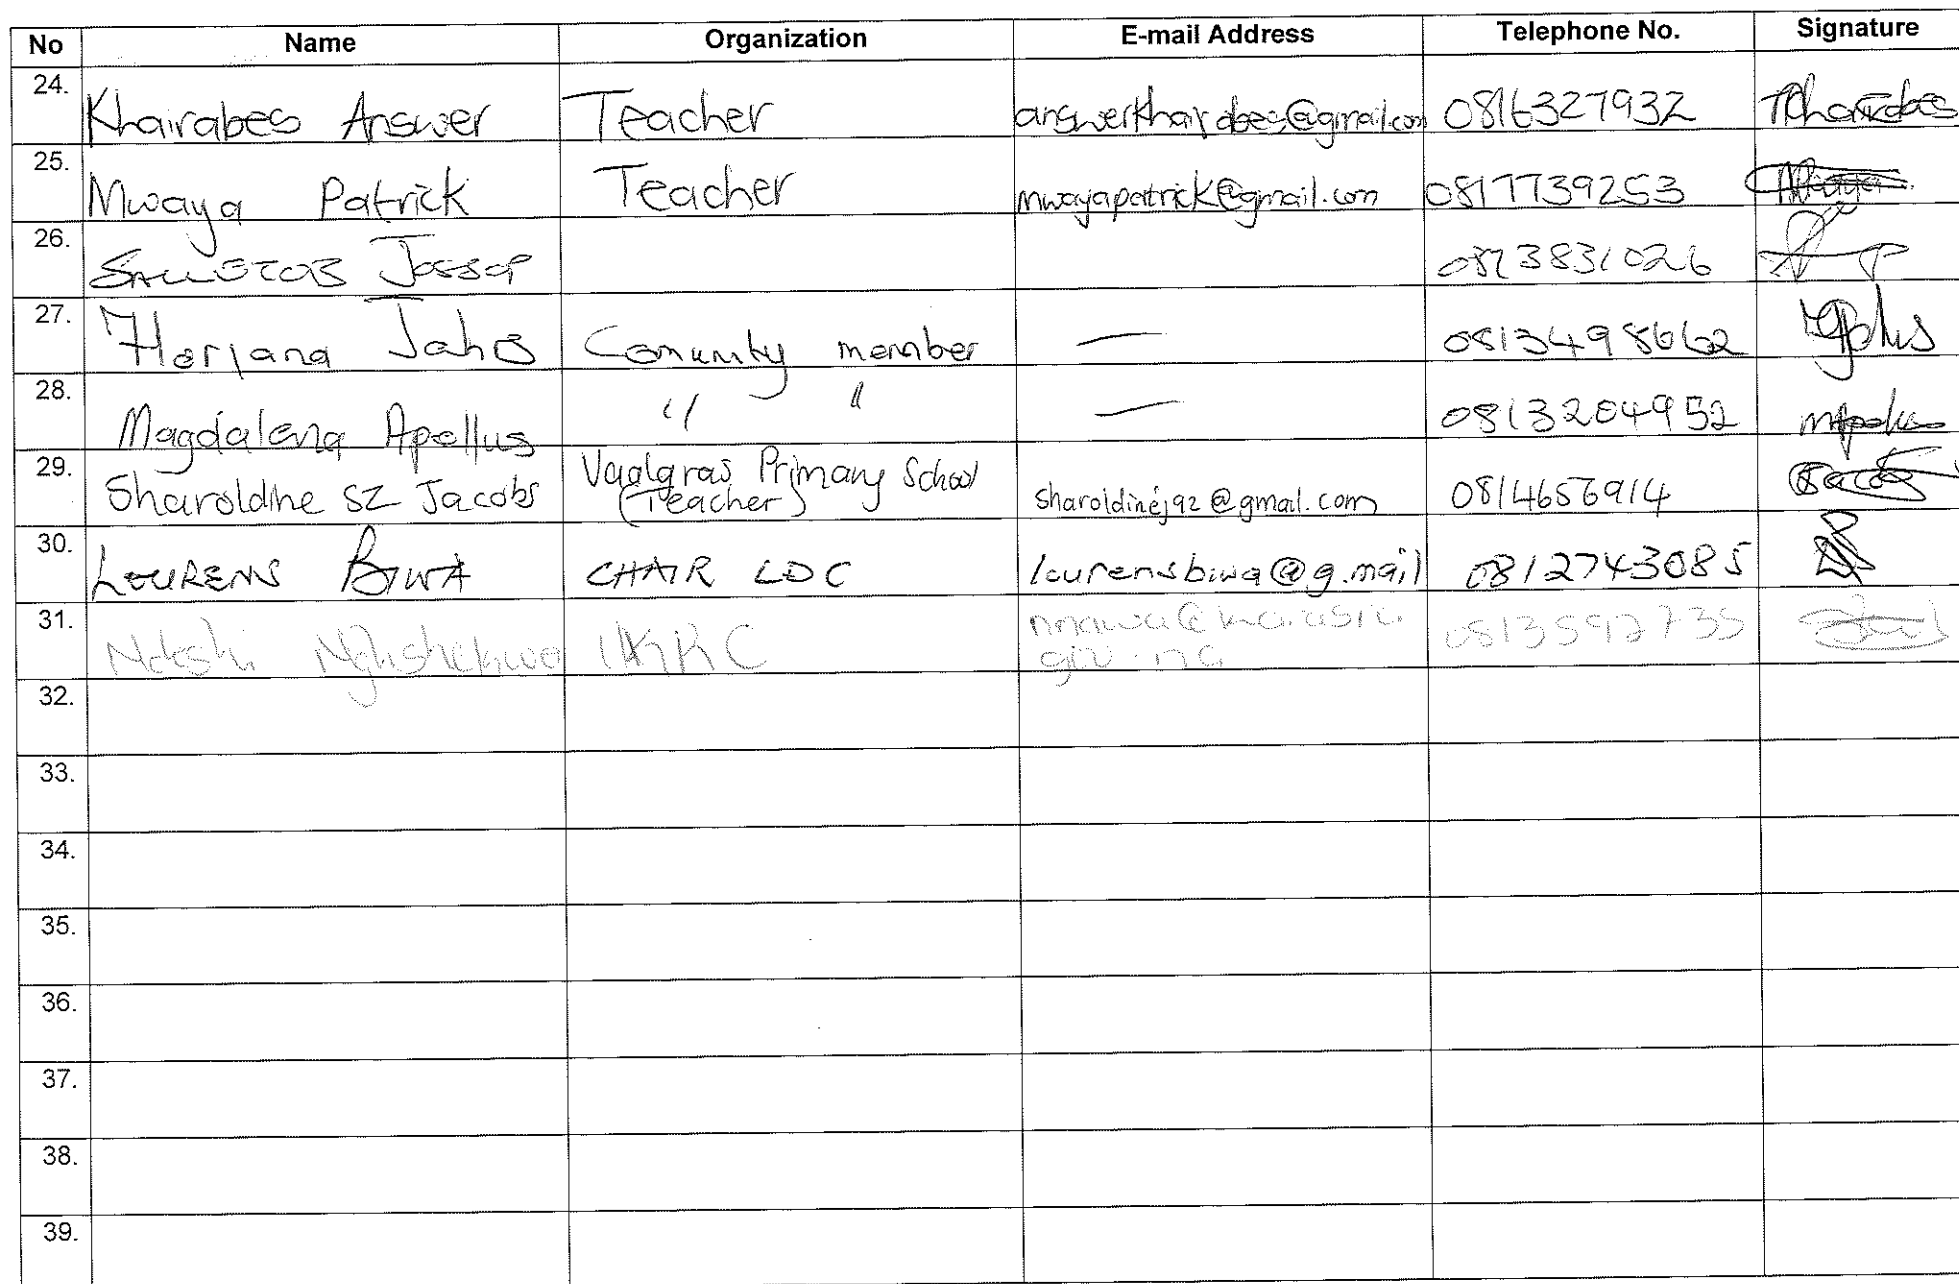 No Name Organization E-mail Address Telephone No. Signature
24. Khairabes Answer Teacher answerkhairabes@gmail.com 0816327932
25. Mwaya Patrick Teacher mwayapatrick@gmail.com 0817739253
26. 0813831026
27. Comunity member — 0813498662
28. Magdalena Apollus " " — 0813204952
29. Sharoldine SZ Jacobs Vaalgras Primary School
(Teacher) sharoldinej92@gmail.com 0814656914
30. LOURENS BIWA CHAIR LDC lourensbiwa@g.mail 0812743085
31. 0813592735
32.
33.
34.
35.
36.
37.
38.
39.